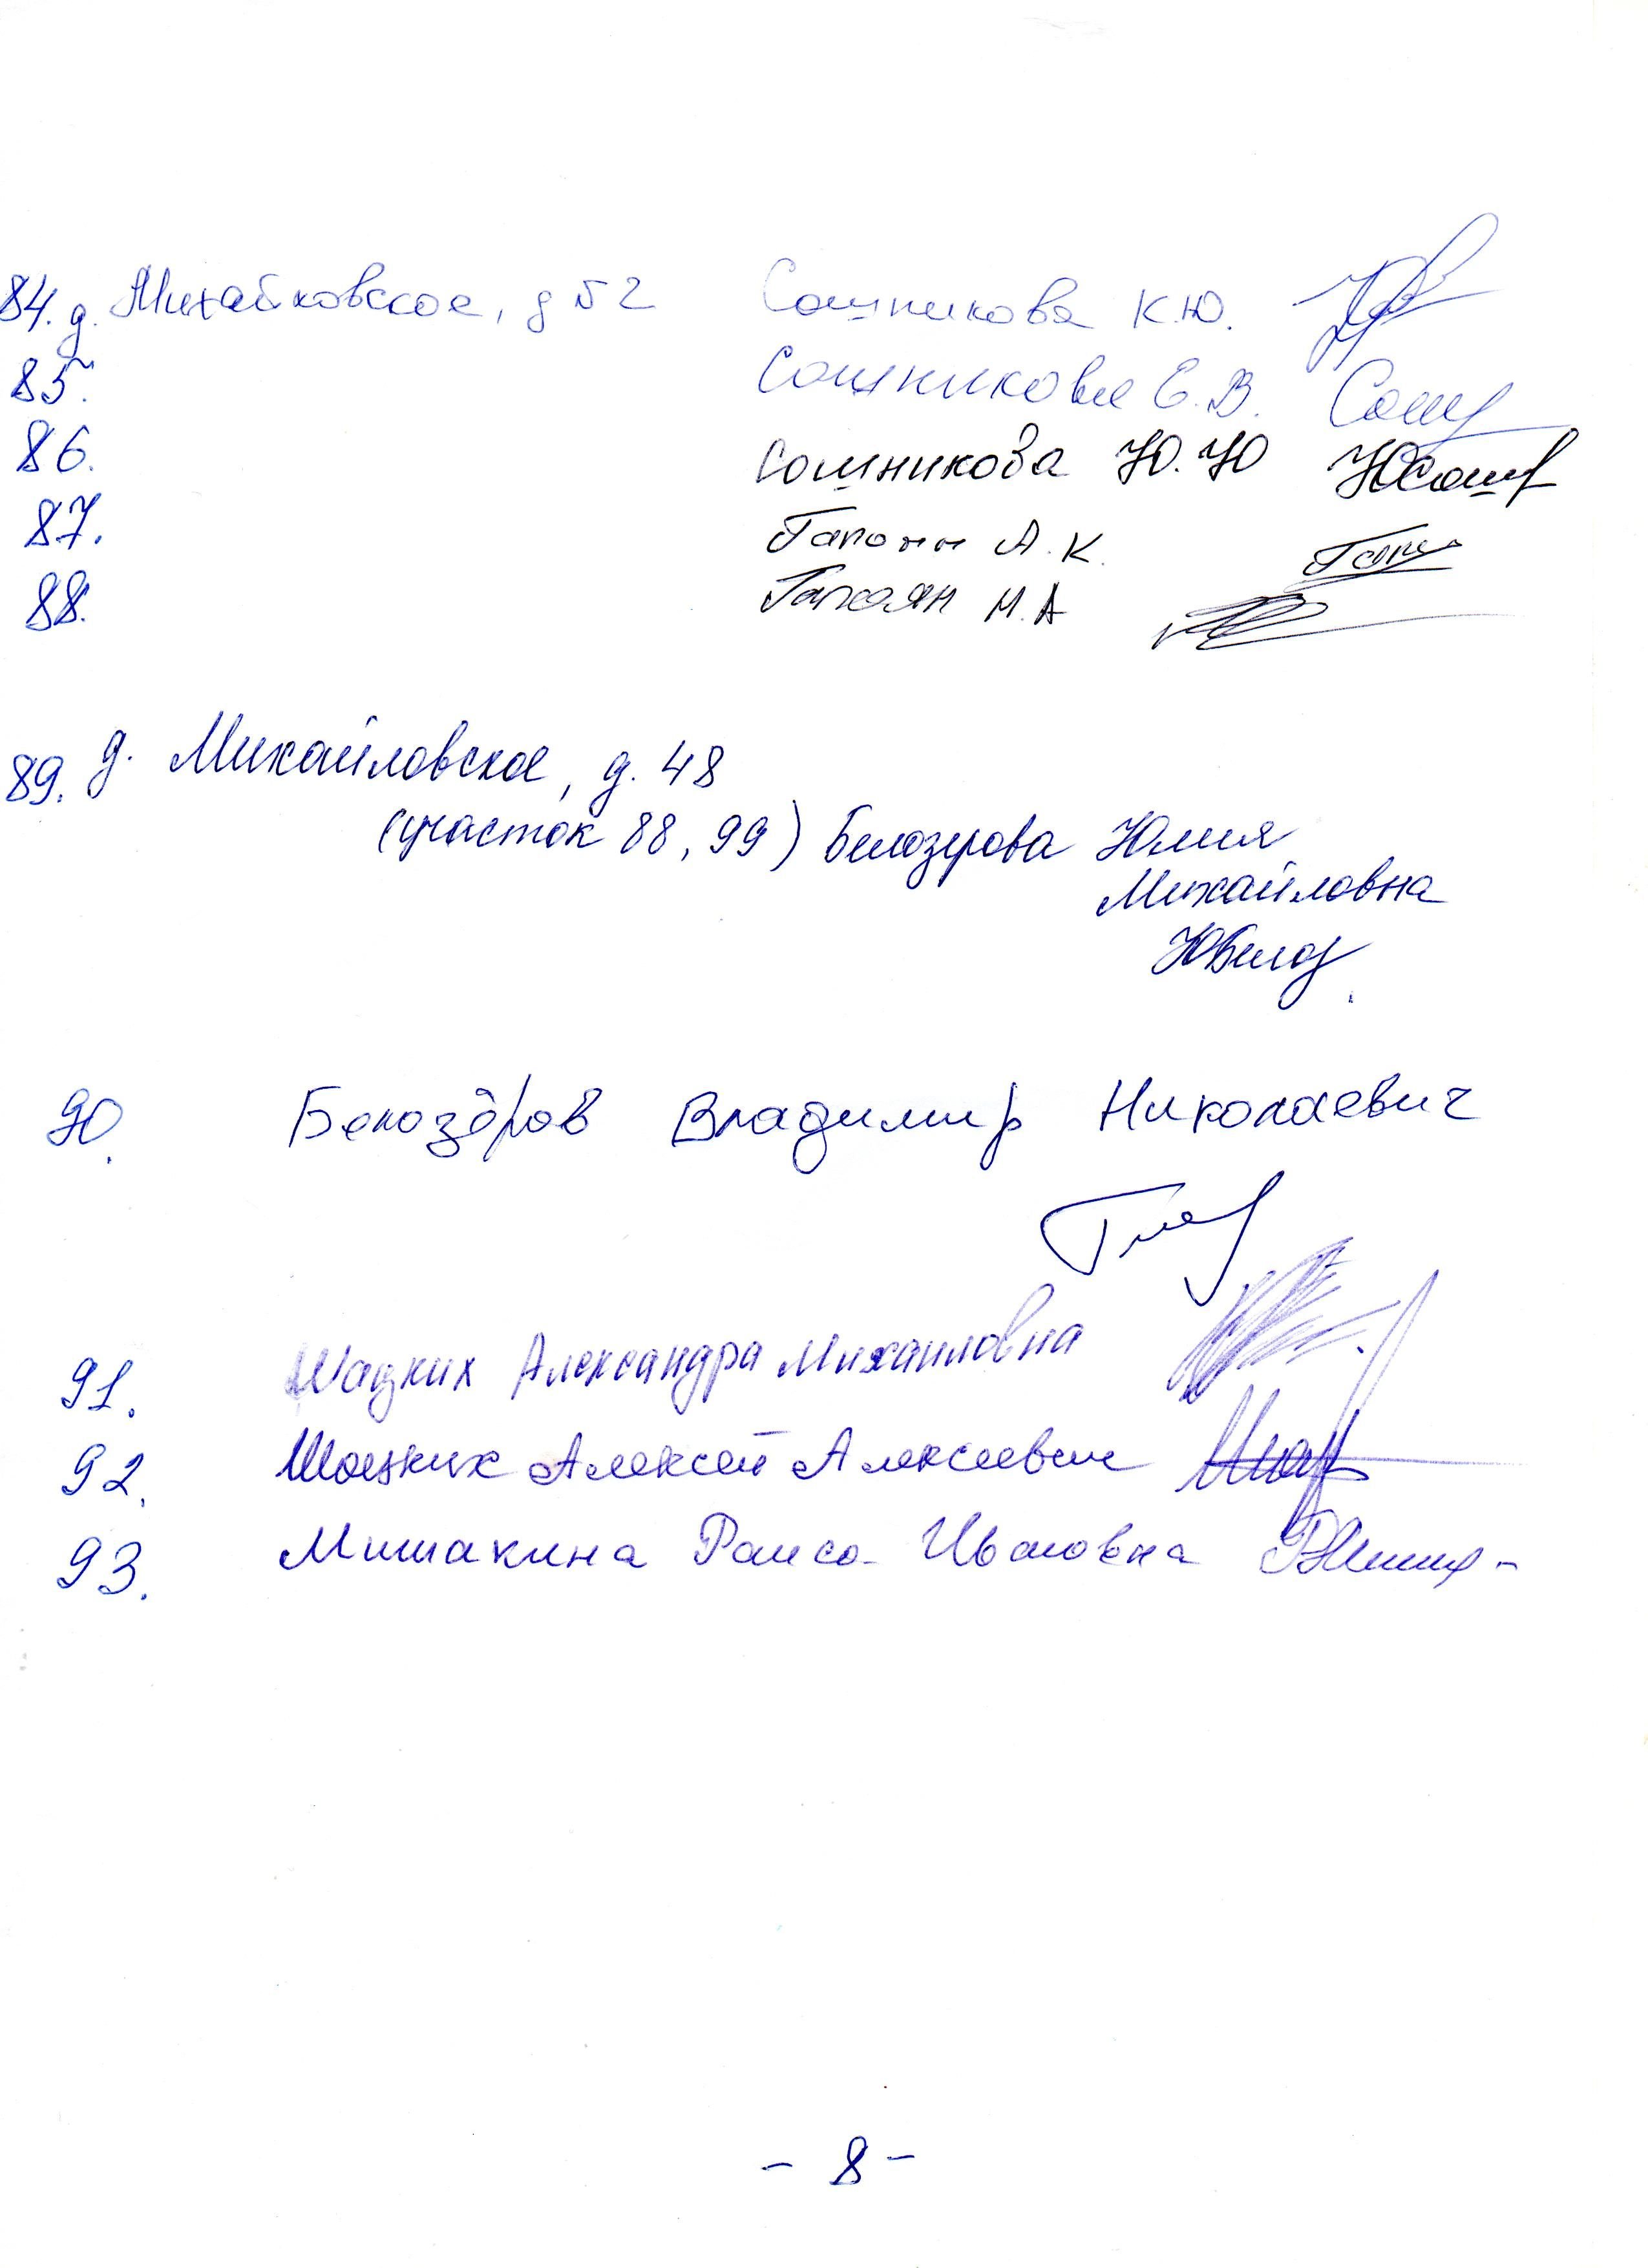 84. д. Михайловское, д 52 Сошникова К.Ю.
85. Сошникова Е.В. Сош
86. Сошникова Ю.Ю ЮСош
87. Гапоян А.К.
88. Гапоян М.А
89. д. Михайловское, д. 48
(участок 88, 99) Белозерова Юлия
Михайловна
ЮБелоз
90. Белозёров Владимир Николаевич
91. Шацких Александра Михайловна
92. Шацких Алексей Алексеевич
93. Мишакина Раиса Ивановна
- 8 -